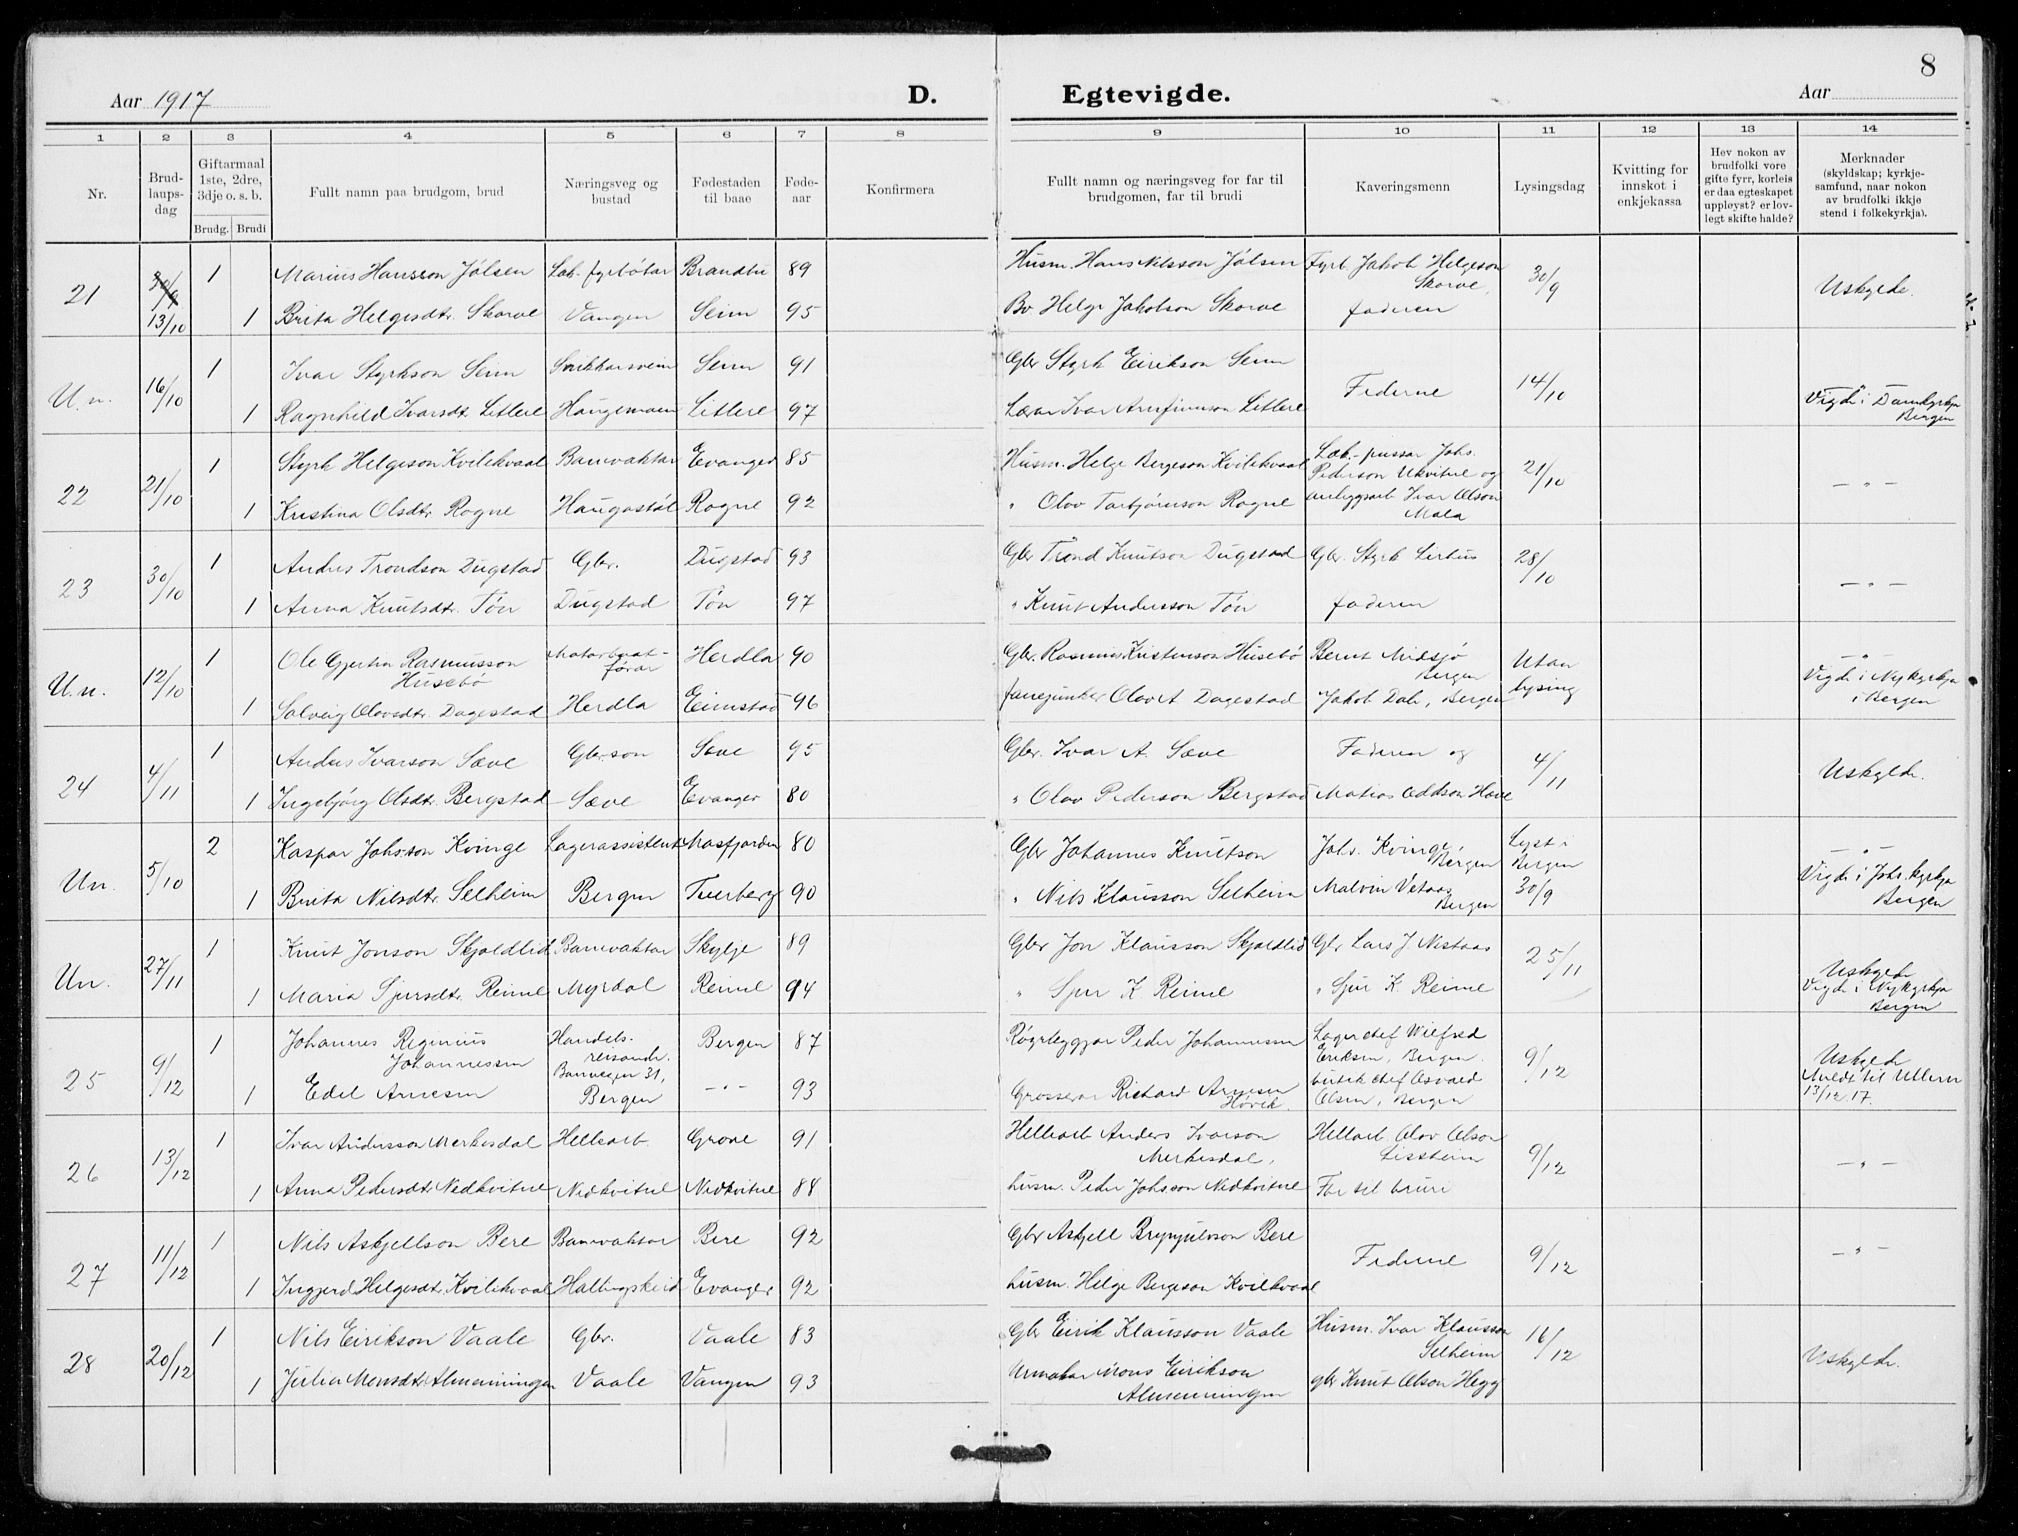 8
Aar 1917 D. Egtevigde. Aar
1 2 3 4 5 6 7 8 9 10 11 12 13 14
Nr.
Brud-
laups-
dag
Giftarmaal
1ste, 2dre,
3dje o. s. b.
Brudg. Brudi
Fullt namn paa brudgom, brud
Næringsveg og
bustad
Fødestaden
til baae
Føde-
aar
Konfirmera
Fullt namn og næringsveg for far til
brudgomen, far til brudi
Kaveringsmenn
Lysingsdag
Kvitting for
innskot i
enkjekassa
Hev nokon av
brudfolki vore
gifte fyrr, korleis
er daa egteskapet
uppløyst? er lov-
legt skifte halde?
Merknader
(skyldskap; kyrkje-
samfund, naar nokon
av brudfolki ikkje
stend i folkekyrkja).
21 30/9 13/10 1 Marius Hansson Jølsen Lok. fyrbøtar Brandbu 89 Husm. Hans Nilsson Jølsen Fyrb. Jakob Helgeson Skorve, 30/9 Uskylde.
1 Brita Helgesdtr. Skorve Vangen Seim 95 Bv Helge Jakobson Skorve faderen
U.n. 16/10 1 Ivar Styrkson Seim Seim 91 Gbr Styrk Eirikson Seim Federne 14/10 Vigde i Domkyrkja
1 Ragnhild Ivarsdt. Litlere Haugamoen Litlere 97 Lærar Ivar Arnfinnson Litlere Bergen
22 21/10 1 Styrk Helgeson Kvilekvaal Banevaktar Evanger 85 Husm. Helge Bergeson Kvilekvaal Lok.-pussar Johs. Pederson Ukvitne og 21/10 — " —
1 Kristina Olsdtr. Rogne Haugastøl Rogne 92 " Olov Torbjørnson Rogne anleggsarb Ivar Olson Mala
23 30/10 1 Anders Trondson Dugstad Gbr. Dugstad 93 Gbr Trond Knutson Dugstad Gbr. Styrk Lirhus 28/10 — " —
1 Anna Knutsdt. Tøn Dugstad Tøn 97 " Knut Andersson Tøn faderen
U.n. 12/10 1 Ole Gjertin Rasmusson Husebø Motorbaat-førar Herdla 90 Gbr. Rasmus Kristenson Husebø Bernt Midsjø Bergen Utan lysing — " — Vigde i Nykyrkja
1 Solveig Olavsdtr. Dagestad Herdla Eimstad 96 fanejunker Olav A Dagestad Jakob Dale, Bergen i Bergen
24 4/11 1 Anders Ivarson Sæve Gbr.son Sæve 95 Gbr. Ivar A. Sæve Faderen og 4/11 Uskylde.
1 Ingebjørg Olsdtr. Bergstad Sæve Evanger 80 " Olav Pederson Bergstad Matias Oddson Hove
Un. 5/10 2 Kaspar Johsson Kvinge Lagerassistent Masfjorden 80 Gbr Johannes Knutson Johs. Kvinge, Bergen Lyst i Bergen 30/9 — " — Vigde i Johs. kyrkja
1 Brita Nilsdtr. Selheim Bergen Tverberg 90 " Nils Klausson Selheim Malvin Vetaas Bergen Bergen
Un. 27/11 1 Knut Jonson Skjoldlid Banevaktar Skylje 89 Gbr Jon Klausson Skjoldlid Gbr Lars J. Nestaas 25/11 Uskylde Vigde i Nykyrkja
1 Maria Sjursdt. Reime Myrdal Reime 94 " Sjur K Reime " Sjur K Reime Bergen
25 9/12 1 Johannes Reginius Johannessen Handels-reisande. Banvegen 31, Bergen 87 Røyrleggjar Peder Johannessen Lagerchef Wilfred Eriksen, Bergen. 9/12 Uskylde
1 Edel Arnesen Bergen — " — 93 Grosserar Richard Arnesen Høvik. butik chef Osvald Olsen, Bergen Meldt til Ullern 13/12 17.
26 13/12 1 Ivar Andersson Merkesdal Hellearb. Grove 91 Hellearb Anders Ivarson Merkesdal, Hellarb. Olov Olson 9/12 — " —
1 Anna Pedersdtr. Nedkvitne Nedkvitne Nedkvitne 88 husm. Peder Johsson Nedkvitne Far til bruri
27 11/12 1 Nils Askjellson Bere Banevaktar Bere 92 Gbr Askjell Brynjulvson Bere Federne 9/12 — " —
1 Ingjerd Helgesdtr. Kvilekvaal Hallingskeid Evanger 92 husm. Helge Bergeson Kvilekvaal
28 20/12 1 Nils Eirikson Vaale Gbr. Vaale 83 Gbr Eirik Klausson Vaale Husm. Ivar Klausson Selheim 16/12 Uskylde.
1 Julia Monsdtr. Almenningen Vaale Vangen 93 Urmakar Mons Eirikson Almenningen gbr Knut Olson Hegg